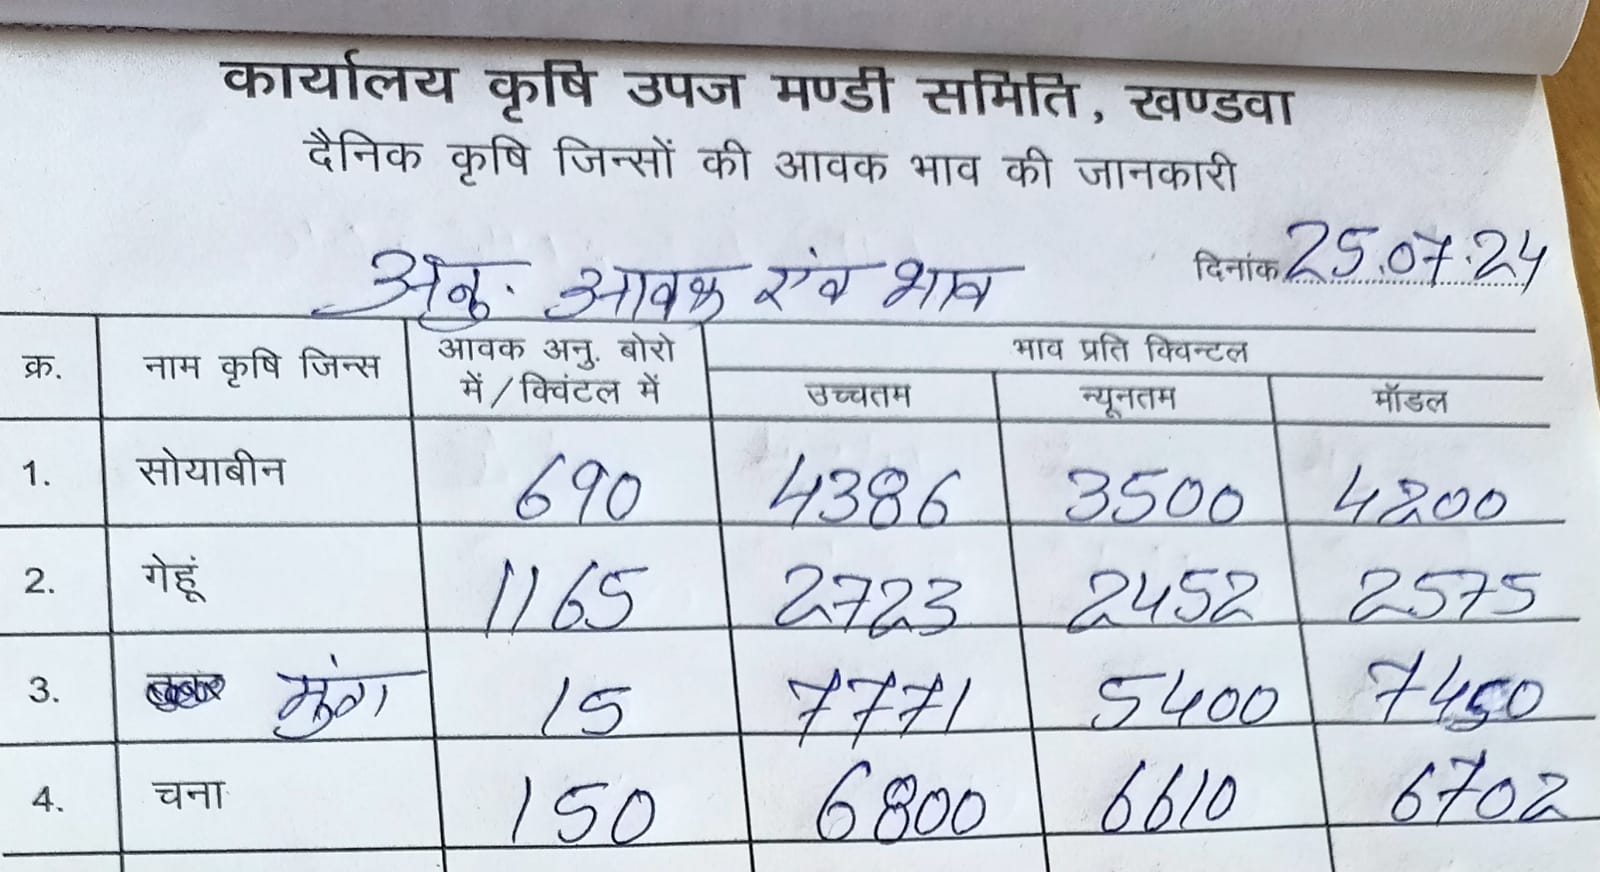 कार्यालय कृषि उपज मण्डी समिति, खण्डवा
दैनिक कृषि जिन्सों की आवक भाव की जानकारी
अनु. आवक एंव भाव दिनांक 25.07.24
क्र. नाम कृषि जिन्स आवक अनु. बोरो में / क्विंटल में भाव प्रति क्विन्टल
उच्चतम न्यूनतम मॉडल
1. सोयाबीन 690 4386 3500 4200
2. गेहूं 1165 2723 2452 2575
3. मुंग 15 7771 5400 7450
4. चना 150 6800 6610 6702